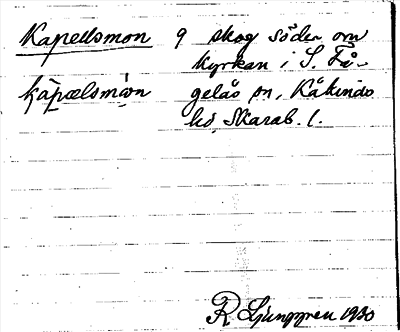 Kapellsmon 9 skog söder om
kyrkan i S. Få-
kapælsmon gelås sn, Kåkinds
hd, Skarab. l.
R Ljunggren 1930